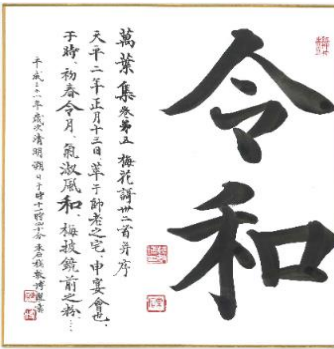 令和
萬葉集巻第五 梅花謌卅二首并序
天平二年正月十三日、萃于帥老之宅、申宴會也、
于時、初春令月、氣淑風和、梅披鏡前之粉…
平成三十一年歳次清明朔日于時十一時四十分